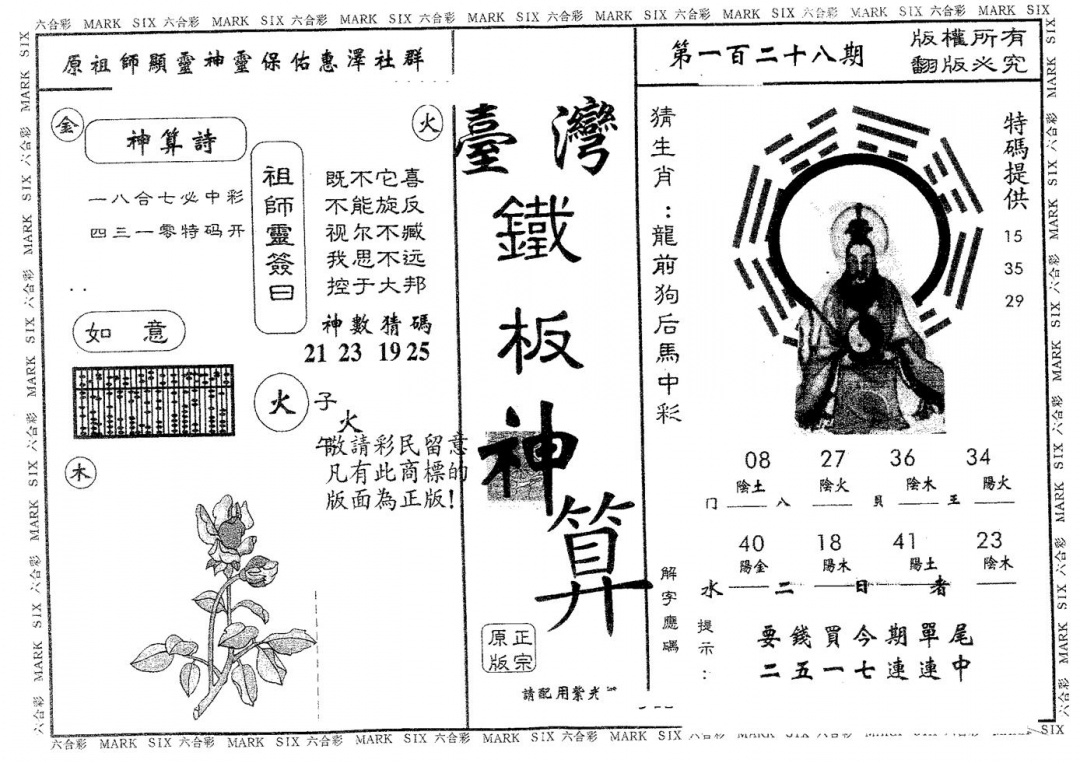 六合彩 MARK SIX 六合彩 MARK SIX 六合彩 MARK SIX 六合彩 MARK SIX 六合彩 MARK SIX 六合彩 MARK SIX 六合彩 MARK SIX 六合彩 MARK SIX
原祖師顯靈神靈保佑惠澤社群
第一百二十八期
版權所有
翻版必究
金
神算詩
火
一八合七必中彩
四三一零特码开
祖師靈簽曰
既不它喜
不能旋反
视尔不臧
我思不远
控于大邦
神數猜碼
21 23 19 25
如意
火
子
火
午
敬請彩民留意
凡有此商標的
版面為正版!
木
臺灣
鐵
板
神
算
正宗
原版
請配用紫光
猜生肖:龍前狗后馬中彩
特碼提供
15
35
29
08 27 36 34
陰土 陰火 陰木 陽火
门 八 貝 王
40 18 41 23
陽金 陽木 陽土 陰木
水 二 日 者
解字應碼
提示:
要錢買今期單尾
二五一七連連中
六合彩 MARK SIX 六合彩 MARK SIX 六合彩 MARK SIX 六合彩 MARK SIX 六合彩 MARK SIX